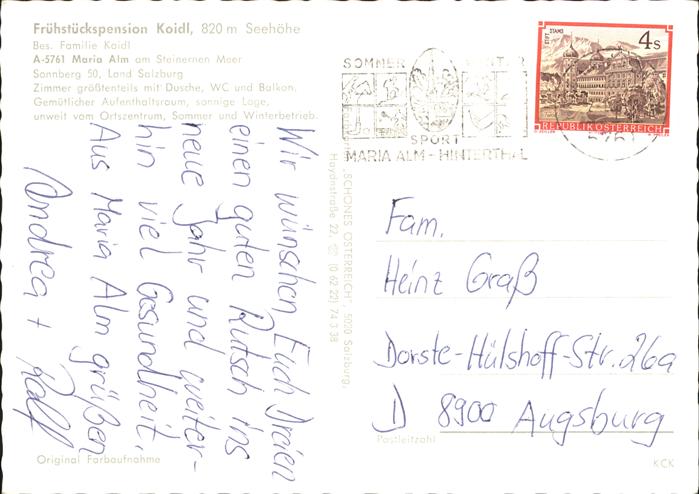 Frühstückspension Koidl, 820 m Seehöhe
Bes. Familie Koidl
A-5761 Maria Alm am Steinernen Meer
Sonnberg 50, Land Salzburg
Zimmer größtenteils mit Dusche, WC und Balkon.
Gemütlicher Aufenthaltsraum, sonnige Lage,
unweit vom Ortszentrum, Sommer und Winterbetrieb.
Wir wünschen Euch Dreien
einen guten Rutsch ins
neue Jahr und weiter-
hin viel Gesundheit.
Aus Maria Alm grüßen
Andrea + Ralf
Original Farbaufnahme
"SCHÖNES ÖSTERREICH", 5020 Salzburg,
Haydnstraße 22, (0 62 22) 74 3 38
SOMMER WINTER
SPORT
MARIA ALM - HINTERTHAL
STIFT STAMS
4 S
REPUBLIK ÖSTERREICH
5761
Fam.
Heinz Graß
Dorste-Hülshoff-Str. 26a
D 8900 Augsburg
Postleitzahl
KCK